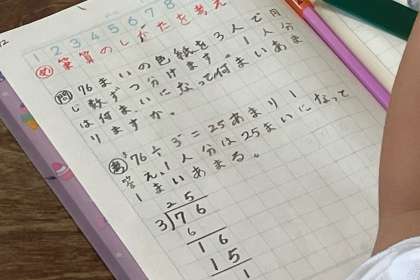 12
1 2 3 4 5 6 7 8
め 筆算のしかたを考え
問 76まいの色紙を3人で同
じ数ずつ分けます。1人分
は何まいになって何まいあま
りますか。
考 76÷3=25あまり1
答え、1人分は25まいになって
1まいあまる。
25
3)76
6
16
15
1